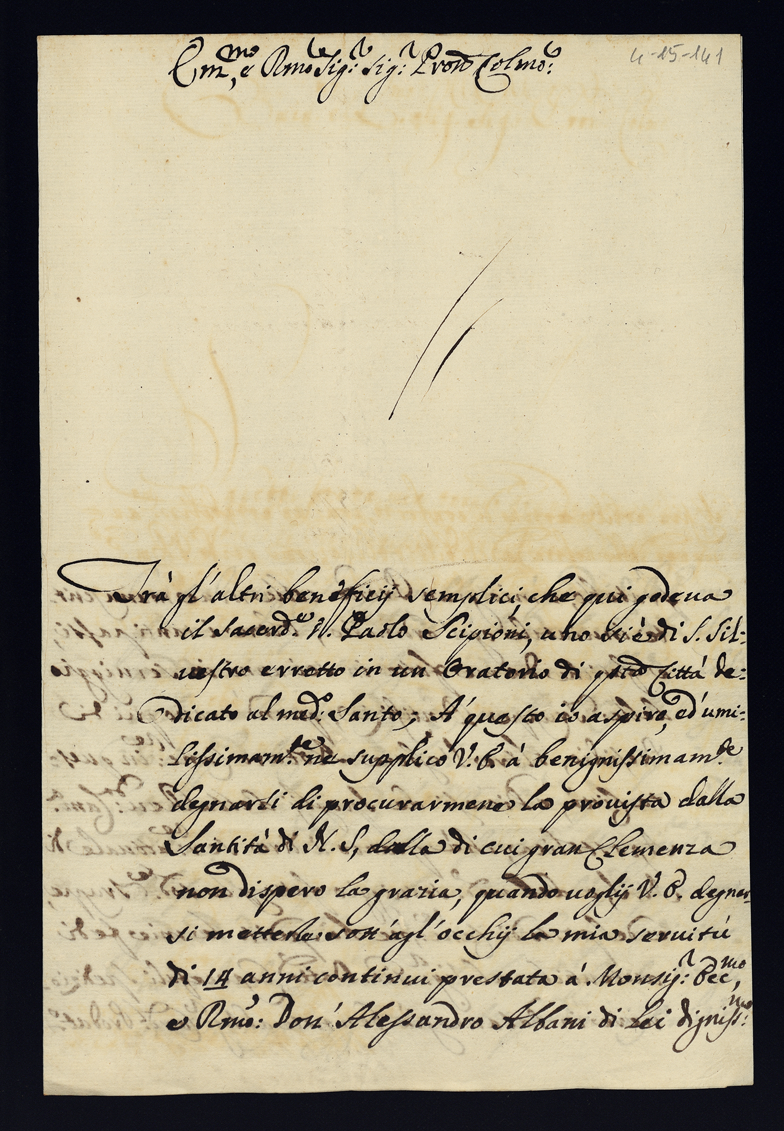 4-15-141
Em.mo, e R.mo Sig.r Sig.r Pron Colmo:
Trà gl'altri beneficij semplici, che qui godeua
il Sacerd.e D. Paolo Scipioni, uno si è di S. Sil-
uestro erretto in un Oratorio di q.sta Città de-
dicato al med.o Santo; A' questo io aspiro, ed' umi-
lissimam.te ne supplico V. E. à benignissimam.te
degnarsi di procurarmene la prouista dalla
Santità di N. S, dalla di cui gran Clemenza
non dispero la grazia, quando uoglij V. E. degnar-
si metterle sott'agl'occhij la mia seruitù
di 14 anni continui prestata á Monsig.r Ecc.mo,
e R.mo: Don' Alessandro Albani di Lei digniss.mo: